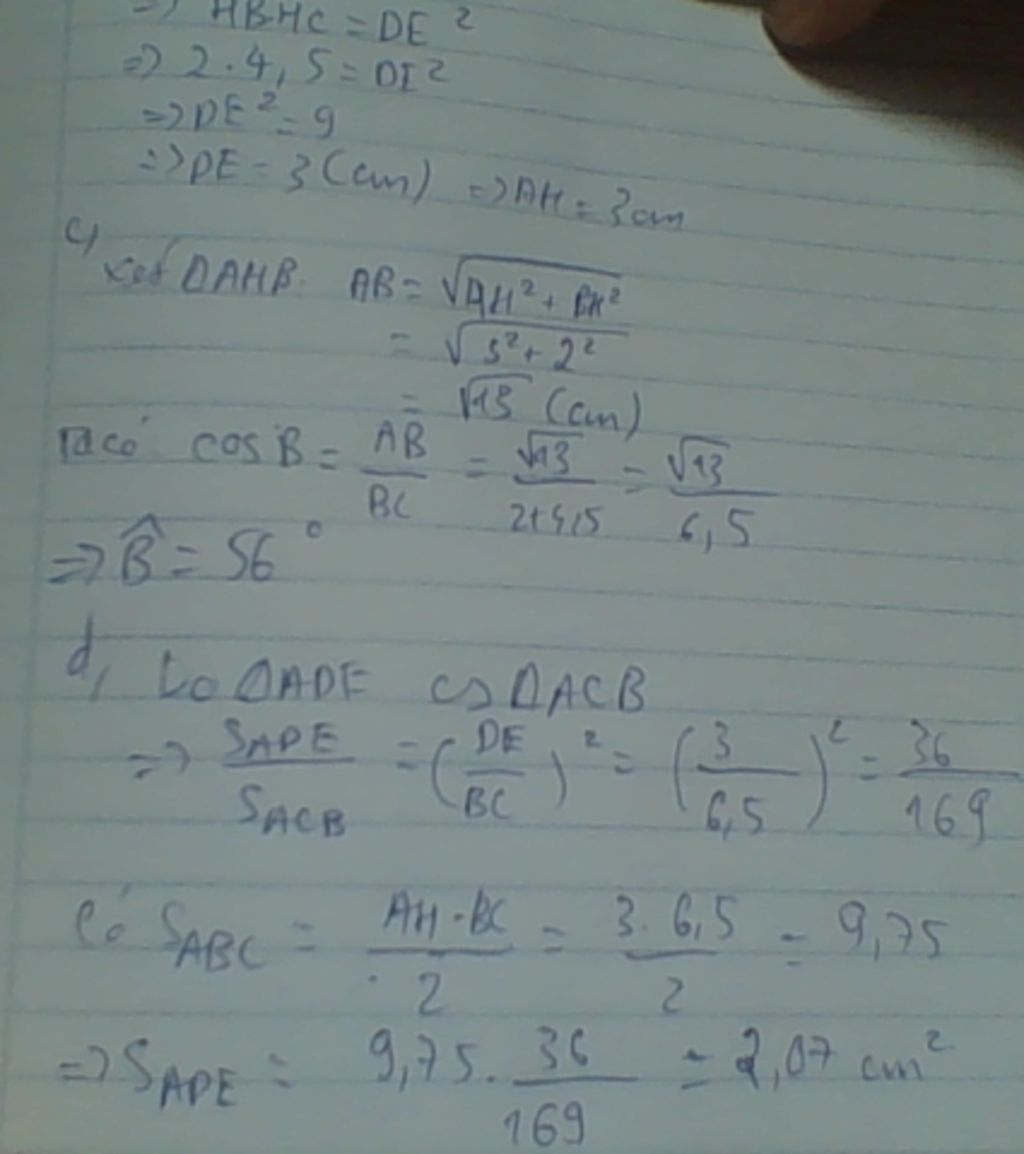 => HBHC = DE²
=> 2.4,5 = DE²
=> DE² = 9
=> DE = 3 (cm) => AH = 3cm
c, xét ΔAHB. AB = √AH² + BH²
= √3² + 2²
= √13 (cm)
Ta có cos B = AB/BC = √13/2+4,5 = √13/6,5
=> B̂ = 56°
d, Có ΔADE ∽ ΔACB
=> S_ADE/S_ACB = (DE/BC)² = (3/6,5)² = 36/169
Có S_ABC = AH.BC/2 = 3.6,5/2 = 9,75
=> S_ADE = 9,75. 36/169 = 2,07 cm²